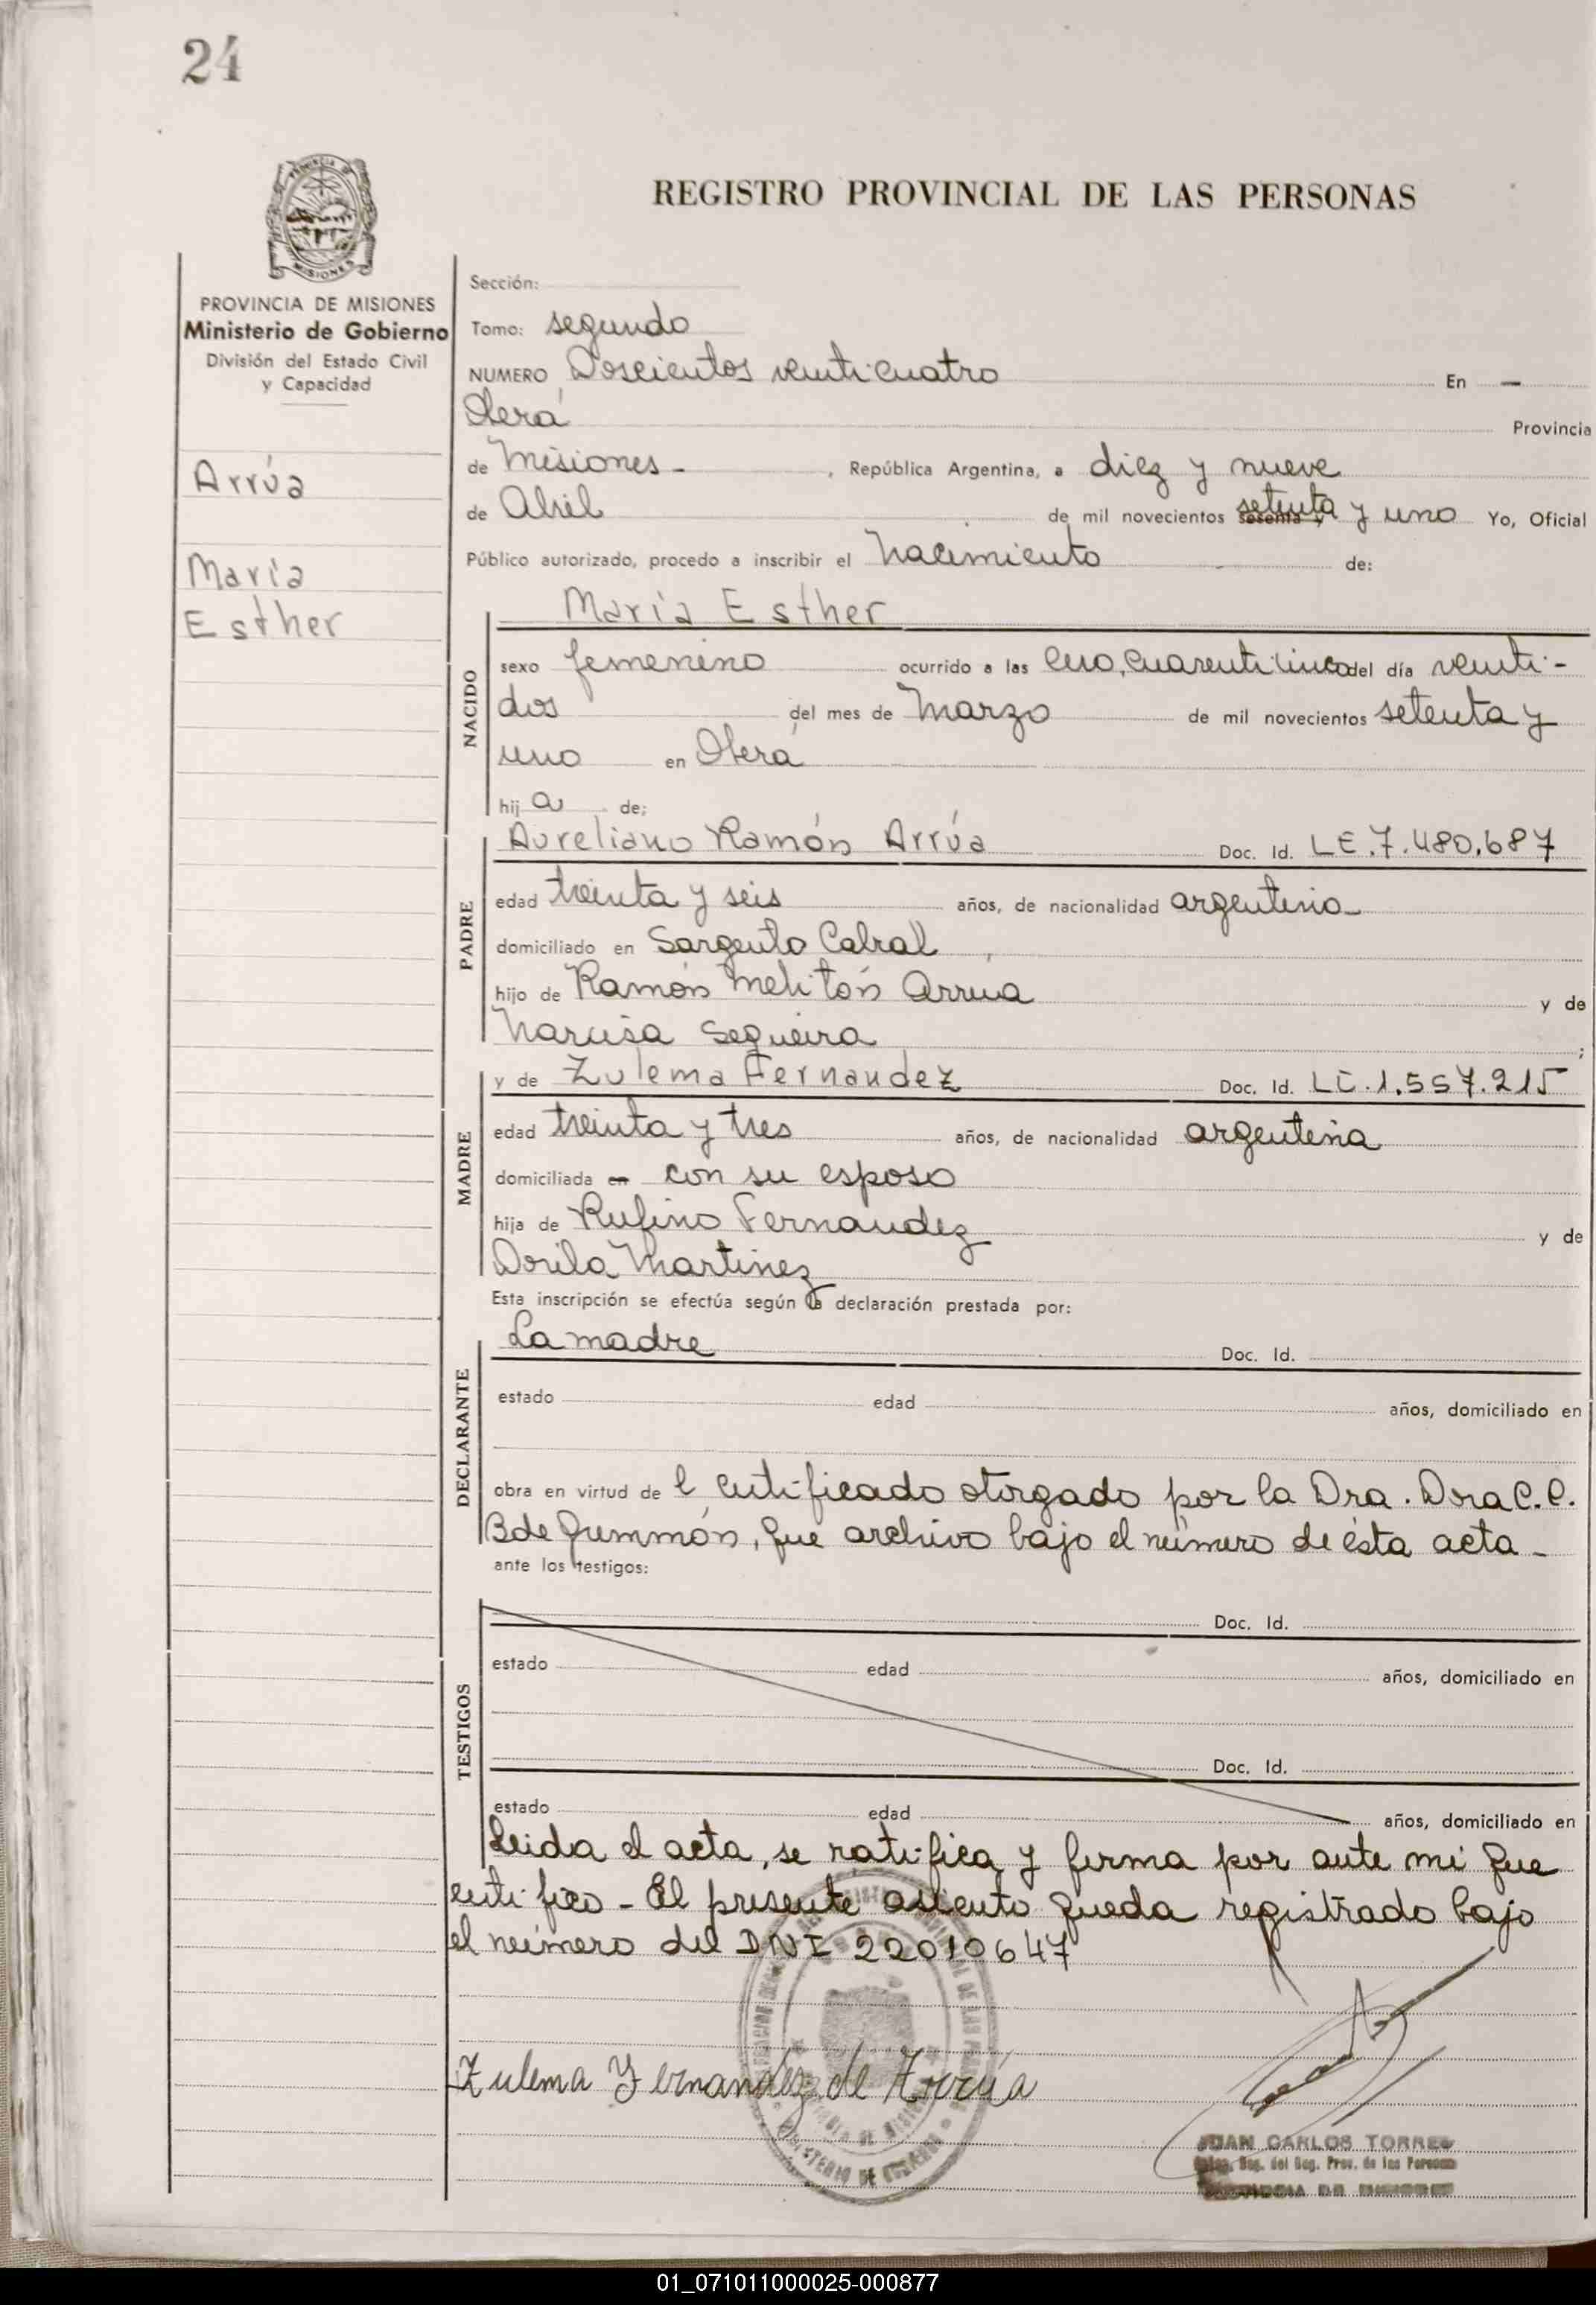 24
REGISTRO PROVINCIAL DE LAS PERSONAS
MISIONES
PROVINCIA DE MISIONES
Ministerio de Gobierno
División del Estado Civil
y Capacidad
Arrúa
María
Esther
Sección:
Tomo: segundo
NUMERO Doscientos venticuatro En —
Oberá Provincia
de Misiones - , República Argentina, a diez y nueve
de Abril de mil novecientos setenta y uno Yo, Oficial
Público autorizado, procedo a inscribir el Nacimiento de:
NACIDO
María Esther
sexo femenino ocurrido a las cero, cuarenticinco del día venti-
dos del mes de Marzo de mil novecientos setenta y
uno en Oberá
hij a de:
PADRE
Aureliano Ramón Arrúa Doc. Id. LE.7.480.687
edad treinta y seis años, de nacionalidad argentino-
domiciliado en Sargento Cabral
hijo de Ramón Melitón Arrua y de
Narcisa Sequeira ;
MADRE
y de Zulema Fernandez Doc. Id. LC.1.557.215
edad treinta y tres años, de nacionalidad argentina
domiciliada en con su esposo
hija de Rufino Fernandez y de
Dorila Martinez
Esta inscripción se efectúa según la declaración prestada por:
DECLARANTE
La madre Doc. Id.
estado edad años, domiciliado en
obra en virtud de l certificado otorgado por la Dra. Dora C.C.
B de que archivo bajo el número de ésta acta -
ante los testigos:
TESTIGOS
Doc. Id.
estado edad años, domiciliado en
Doc. Id.
estado edad años, domiciliado en
Leida el acta, se ratifica y firma por ante mi que
certifico - El presente asiento queda registrado bajo
el número del DNI 22010647
Zulema Fernandez de Arrúa
JUAN CARLOS TORRES
del Reg. Prov. de las Personas
PROVINCIA DE MISIONES
01_071011000025-000877